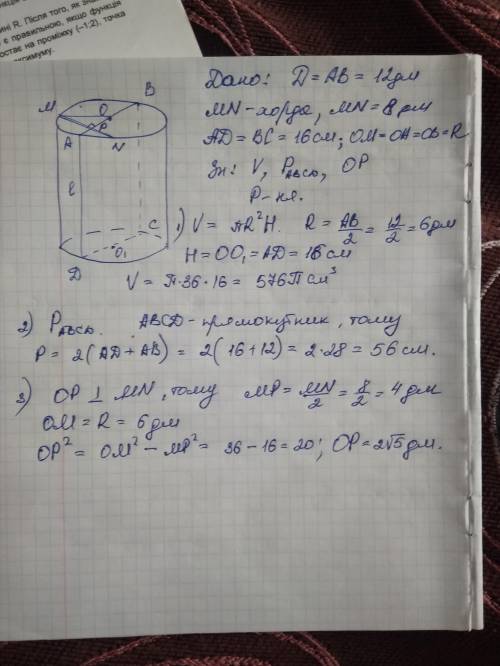 ині R. Після того, як
є правильною, якщо функція
остає на проміжку (–1;2), точка
ксимуму.
Дано: D = AB = 12дм
MN-хорда, MN = 8 дм
AD = BC = 16 см; OM = OH = OB = R
Зн: V, P ABCD, OP
P - кл.
M
B
O
P
A
N
l
C
D
O₁
1) V = πR²H. R = AB/2 = 12/2 = 6дм
H = OO₁ = AD = 16см
V = π·36·16 = 576π см³
2) P ABCD. ABCD - прямокутник, тому
P = 2(AD + AB) = 2(16+12) = 2·28 = 56 см.
3) OP ⊥ MN, тому MP = MN/2 = 8/2 = 4 дм
OM = R = 6 дм
OP² = OM² - MP² = 36 - 16 = 20; OP = 2√5 дм.